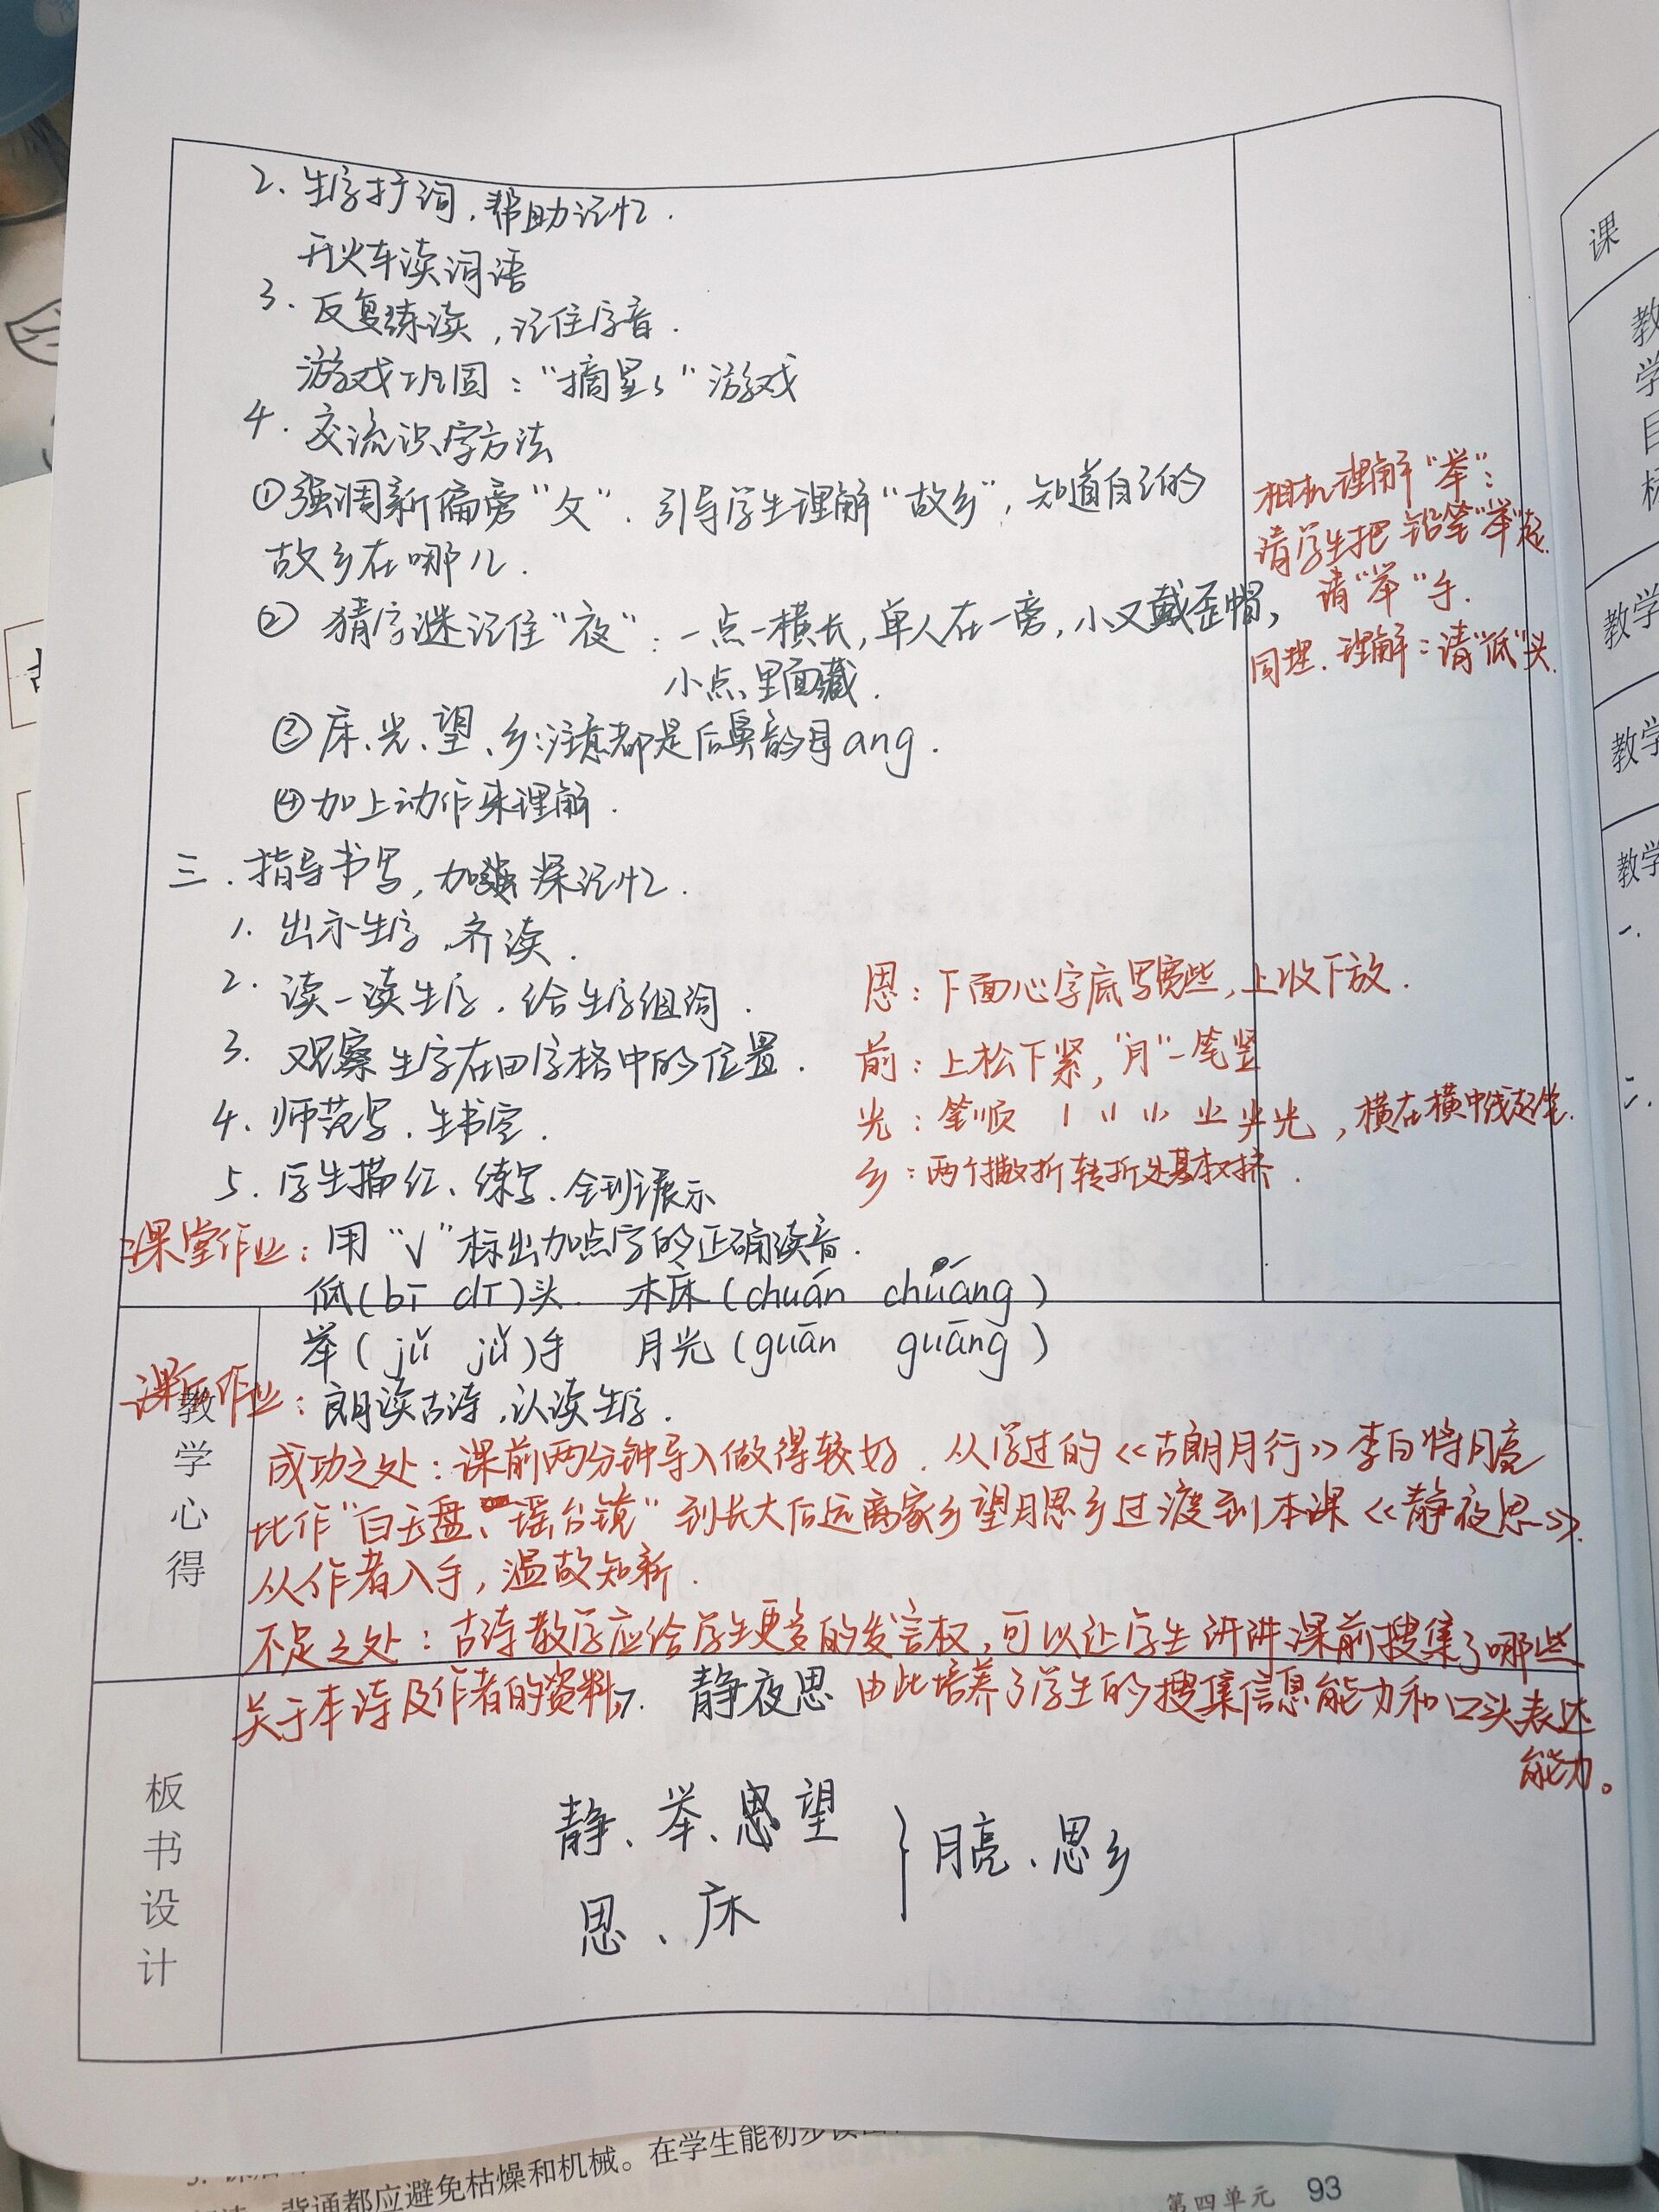 2. 生字扩词，帮助记忆.
开火车读词语
3. 反复练读，记住字音.
游戏巩固：“摘星星”游戏
4. 交流识字方法
①强调新偏旁“攵”. 引导学生理解“故乡”，知道自己的
故乡在哪儿.
② 猜字谜记住“夜”：一点一横长，单人在一旁，小又戴歪帽，
小点里面藏.
③床、光、望、乡：注意都是后鼻韵母ang.
④加上动作来理解.
相机理解“举”：
请学生把铅笔“举”起.
请“举”手.
同理.理解：请“低”头.
三.指导书写，加深记忆.
1. 出示生字，齐读.
2. 读一读生字，给生字组词.
3. 观察生字在田字格中的位置.
4. 师范写，生书空.
5. 学生描红、练写.全班展示
思：下面心字底写宽些，上收下放.
前：上松下紧，“月”一笔竖
光：笔顺 ，横在横中线起笔.
乡：两个撇折转折处
课堂作业：用“√”标出加点字的正确读音.
低(bī dī)头 木床(chuán chuáng)
举(jǔ jǔ)手 月光(guān guāng)
课后作业：朗读古诗，认读生字.
教学心得
成功之处：课前两分钟导入做得较好.从学过的《古朗月行》李白将月亮
比作“白玉盘、瑶台镜”到长大后远离家乡望月思乡过渡到本课《静夜思》.
从作者入手，温故知新.
不足之处：古诗教学应给学生更多的发言权，可以让学生讲讲课前搜集了哪些
关于本诗及作者的资料，由此培养了学生的搜集信息能力和口头表达
能力。
板书设计
7. 静夜思
静、举、望
思、床
}月亮、思乡
课
教学目标
教学
教学
教学
一.
二.
背诵都应避免枯燥和机械。在学生能初步
第四单元 93